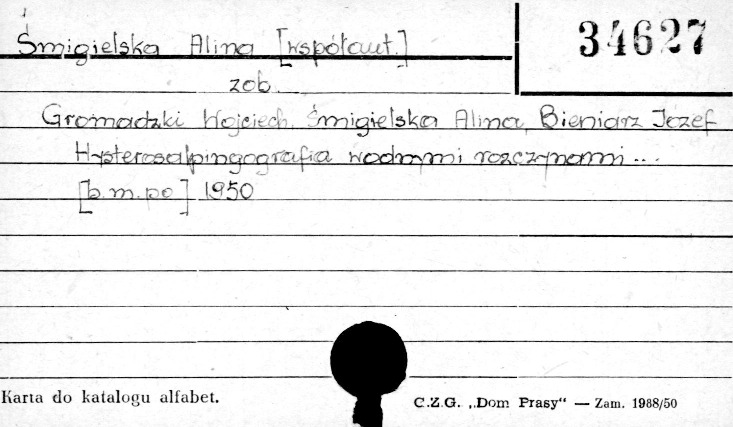 Śmigielska Alina [współaut.]
34627
zob.
Gromadzki Wojciech, Śmigielska Alina, Bieniarz Józef
Hysterosalpingografia wodnymi rozczynami ...
[b.m.po] 1950
Karta do katalogu alfabet.
C.Z.G. „Dom Prasy“ — Zam. 1988/50